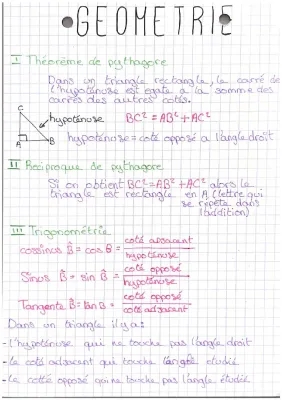 GEOMETRIE
I Théorème de pythagore
Dans un triangle rectangle, le carré de
l'hypoténuse est egale a la somme des
carrés des autres cotés.
C
hypoténuse
BC² = AB² + AC²
A
B
hypoténuse = coté opposé a l'angle droit
II Reciproque de pythagore
Si on obtient BC² = AB² + AC² alors le
triangle est rectangle en A (lettre qui
se repète dans
l'addition)
III Trigonométrie
cossinus B̂ = cos B̂ = coté adjacent
hypoténuse
Sinus B̂ = sin B̂ = coté opposé
hypoténuse
Tangente B̂ = tan B̂ = coté opposé
coté adjacent
Dans un triangle il y a:
- l'hypoténuse qui ne touche pas l'angle droit
- le coté adjacent qui touche l'angle étudié
- Le cotté opposé qui ne touche pas l'angle étudié